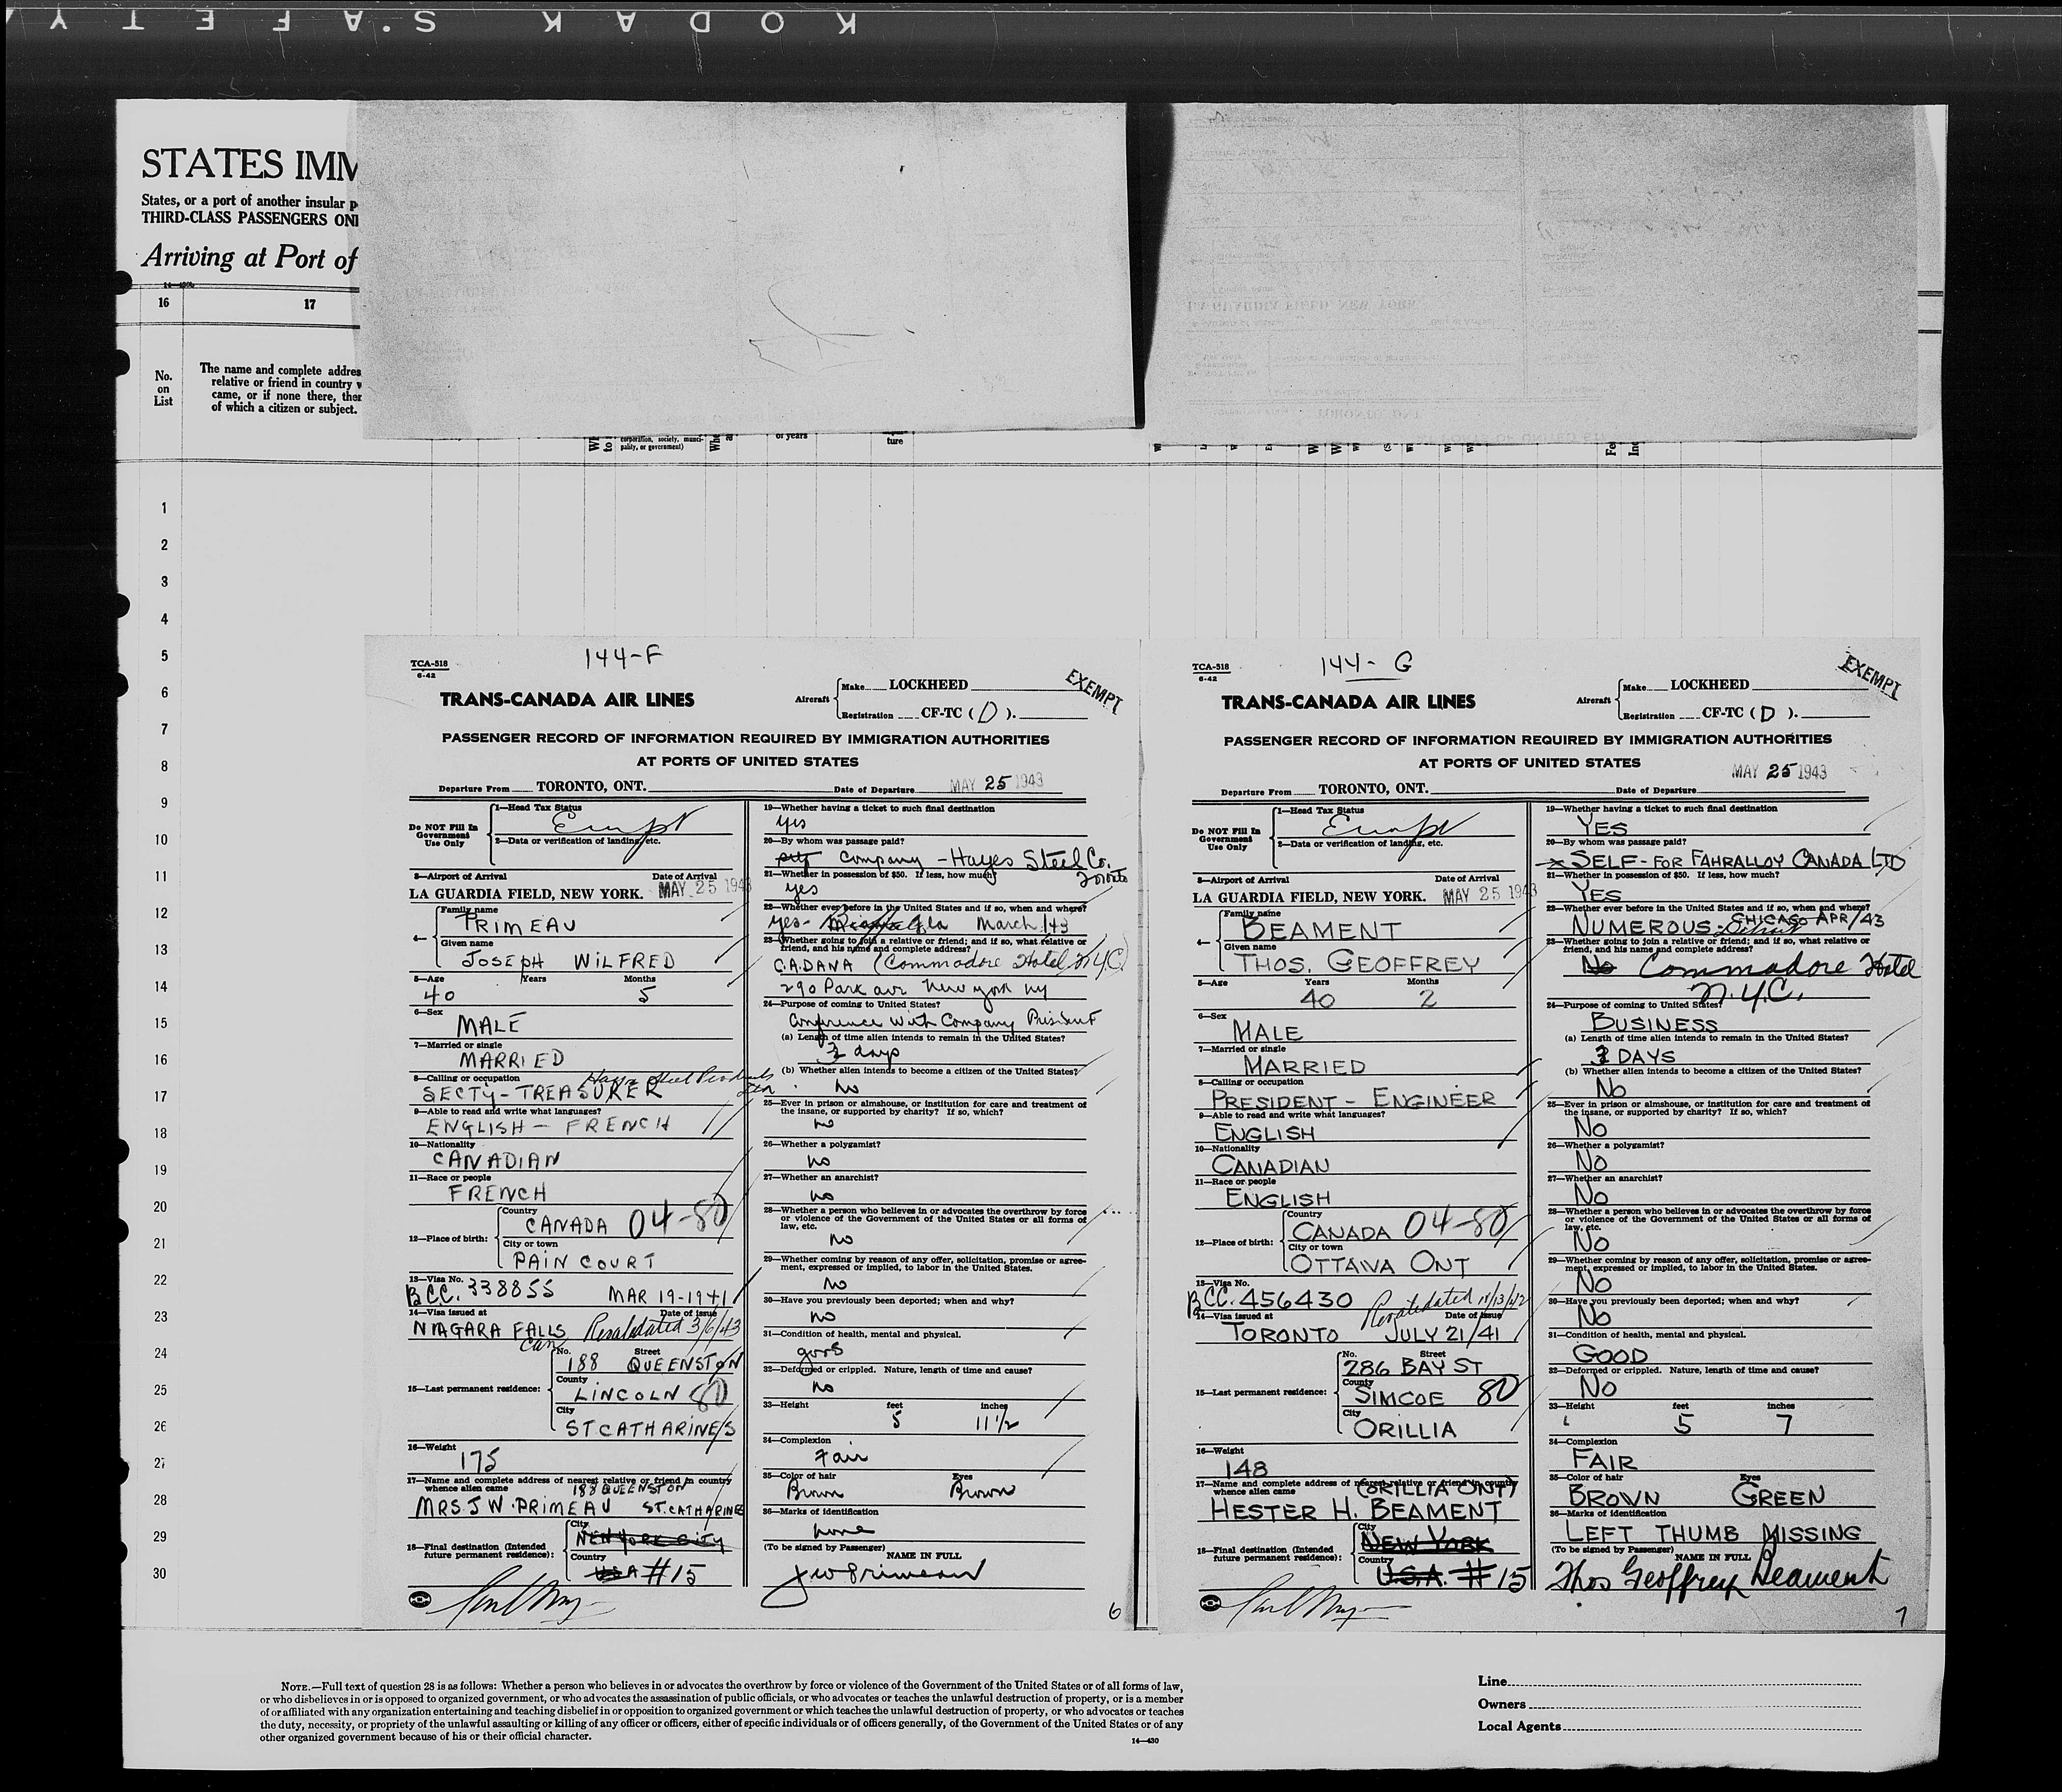 KODAK SAFETY
STATES IMM
States, or a port of another insular p
THIRD-CLASS PASSENGERS ONL
Arriving at Port of
16 17
No. on List
The name and complete addres
relative or friend in country w
came, or if none there, then
of which a citizen or subject.
corporation, society, munici-
pality, or government)
of years
ture
1
2
3
4
5
6
7
8
9
10
11
12
13
14
15
16
17
18
19
20
21
22
23
24
25
26
27
28
29
30
144-F
TCA-518
6-42
EXEMPT
TRANS-CANADA AIR LINES
Aircraft Make LOCKHEED
Registration CF-TC (D).
PASSENGER RECORD OF INFORMATION REQUIRED BY IMMIGRATION AUTHORITIES
AT PORTS OF UNITED STATES
Departure From TORONTO, ONT. Date of Departure MAY 25 1943
Do NOT Fill In Government Use Only
1—Head Tax Status
Exempt
2—Data or verification of landing, etc.
3—Airport of Arrival Date of Arrival
LA GUARDIA FIELD, NEW YORK. MAY 25 1943
4— Family name
PRIMEAU
Given name
JOSEPH WILFRED
5—Age Years Months
40 5
6—Sex
MALE
7—Married or single
MARRIED
8—Calling or occupation Hayes Steel Products Ltd
SECTY-TREASURER
9—Able to read and write what languages?
ENGLISH - FRENCH
10—Nationality
CANADIAN
11—Race or people
FRENCH
12—Place of birth: Country
CANADA 04-80
City or town
PAIN COURT
13—Visa No.
B.C.C. 338855 MAR 19-1941
14—Visa issued at Date of issue
NIAGARA FALLS Can Revalidated 3/6/43
15—Last permanent residence: No. Street
188 QUEENSTON
County
LINCOLN 80
City
ST CATHARINES
16—Weight
175
17—Name and complete address of nearest relative or friend in country
whence alien came 188 QUEENSTON
MRS J W PRIMEAU ST. CATHARINE
18—Final destination (Intended
future permanent residence): City
NEW YORK CITY
Country
USA #15
19—Whether having a ticket to such final destination
yes
20—By whom was passage paid?
self Company - Hayes Steel Co. Toronto
21—Whether in possession of $50. If less, how much?
yes
22—Whether ever before in the United States and if so, when and where?
yes- March/43
23—Whether going to join a relative or friend; and if so, what relative or
friend, and his name and complete address?
C.A. DANA (Commodore Hotel N.Y.C.)
290 Park ave New York ny
24—Purpose of coming to United States?
Conference with Company President
(a) Length of time alien intends to remain in the United States?
days
(b) Whether alien intends to become a citizen of the United States?
no
25—Ever in prison or almshouse, or institution for care and treatment of
the insane, or supported by charity? If so, which?
no
26—Whether a polygamist?
no
27—Whether an anarchist?
no
28—Whether a person who believes in or advocates the overthrow by force
or violence of the Government of the United States or all forms of
law, etc.
no
29—Whether coming by reason of any offer, solicitation, promise or agree-
ment, expressed or implied, to labor in the United States.
no
30—Have you previously been deported; when and why?
no
31—Condition of health, mental and physical.
good
32—Deformed or crippled. Nature, length of time and cause?
no
33—Height feet inches
5 11 1/2
34—Complexion
Fair
35—Color of hair Eyes
Brown Brown
36—Marks of identification
none
(To be signed by Passenger) NAME IN FULL
J W Primeau
6
144-G
TCA-518
6-42
EXEMPT
TRANS-CANADA AIR LINES
Aircraft Make LOCKHEED
Registration CF-TC (D).
PASSENGER RECORD OF INFORMATION REQUIRED BY IMMIGRATION AUTHORITIES
AT PORTS OF UNITED STATES
MAY 25 1943
Departure From TORONTO, ONT. Date of Departure
Do NOT Fill In Government Use Only
1—Head Tax Status
Exempt
2—Data or verification of landing, etc.
3—Airport of Arrival Date of Arrival
LA GUARDIA FIELD, NEW YORK. MAY 25 1943
4— Family name
BEAMENT
Given name
THOS. GEOFFREY
5—Age Years Months
40 2
6—Sex
MALE
7—Married or single
MARRIED
8—Calling or occupation
PRESIDENT - ENGINEER
9—Able to read and write what languages?
ENGLISH
10—Nationality
CANADIAN
11—Race or people
ENGLISH
12—Place of birth: Country
CANADA 04-80
City or town
OTTAWA ONT
13—Visa No.
B.C.C. 456430 Revalidated
14—Visa issued at Date of issue
TORONTO JULY 21/41
15—Last permanent residence: No. Street
286 BAY ST
County
SIMCOE 80
City
ORILLIA
16—Weight
148
17—Name and complete address of nearest relative or friend in country
whence alien came (ORILLIA ONT)
HESTER H. BEAMENT
18—Final destination (Intended
future permanent residence): City
NEW YORK
Country
U.S.A. #15
19—Whether having a ticket to such final destination
YES
20—By whom was passage paid?
x SELF - FOR FAHRALLOY CANADA LTD
21—Whether in possession of $50. If less, how much?
YES
22—Whether ever before in the United States and if so, when and where?
NUMEROUS - CHICAGO APR/43 Detroit
23—Whether going to join a relative or friend; and if so, what relative or
friend, and his name and complete address?
No Commodore Hotel
N.Y.C.
24—Purpose of coming to United States?
BUSINESS
(a) Length of time alien intends to remain in the United States?
DAYS
(b) Whether alien intends to become a citizen of the United States?
No
25—Ever in prison or almshouse, or institution for care and treatment of
the insane, or supported by charity? If so, which?
No
26—Whether a polygamist?
No
27—Whether an anarchist?
No
28—Whether a person who believes in or advocates the overthrow by force
or violence of the Government of the United States or all forms of
law, etc.
No
29—Whether coming by reason of any offer, solicitation, promise or agree-
ment, expressed or implied, to labor in the United States.
No
30—Have you previously been deported; when and why?
No
31—Condition of health, mental and physical.
GOOD
32—Deformed or crippled. Nature, length of time and cause?
No
33—Height feet inches
5 7
34—Complexion
FAIR
35—Color of hair Eyes
BROWN GREEN
36—Marks of identification
LEFT THUMB MISSING
(To be signed by Passenger) NAME IN FULL
Thos Geoffrey Beament
7
NOTE.—Full text of question 28 is as follows: Whether a person who believes in or advocates the overthrow by force or violence of the Government of the United States or of all forms of law,
or who disbelieves in or is opposed to organized government, or who advocates the assassination of public officials, or who advocates or teaches the unlawful destruction of property, or is a member
of or affiliated with any organization entertaining and teaching disbelief in or opposition to organized government or which teaches the unlawful destruction of property, or who advocates or teaches
the duty, necessity, or propriety of the unlawful assaulting or killing of any officer or officers, either of specific individuals or of officers generally, of the Government of the United States or of any
other organized government because of his or their official character.
14—430
Line
Owners
Local Agents